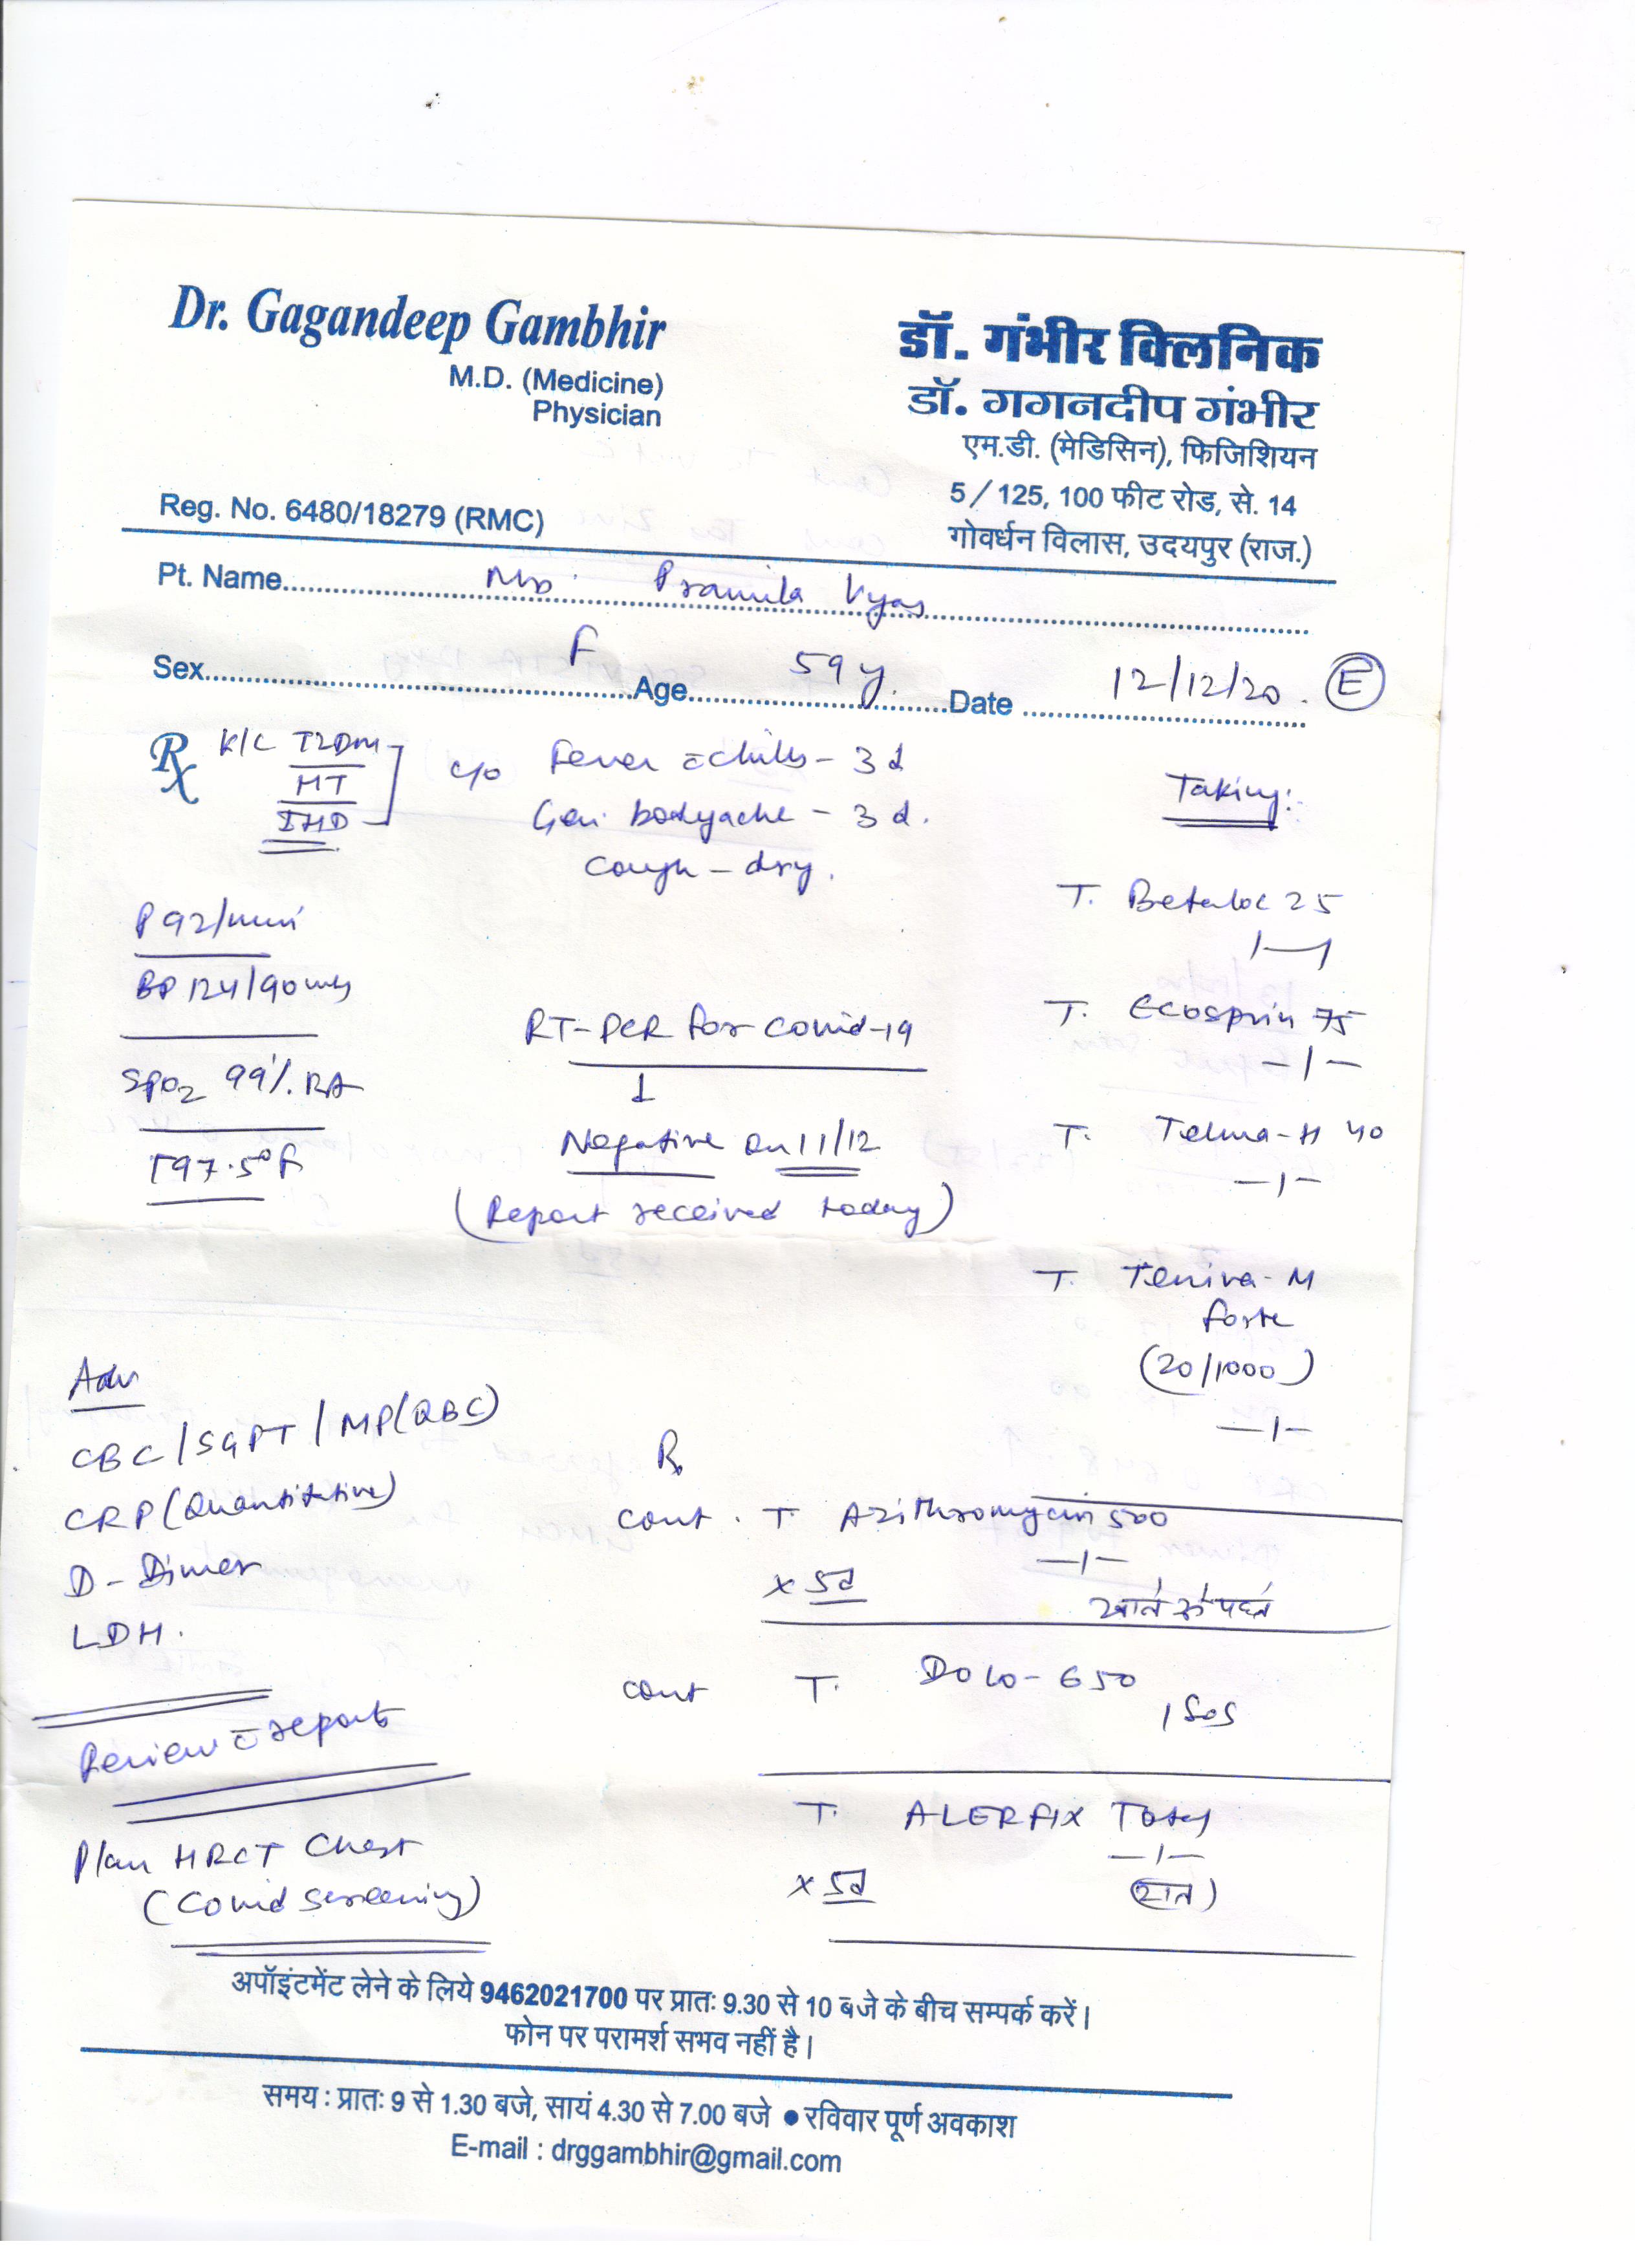 Dr. Gagandeep Gambhir
M.D. (Medicine)
Physician
Reg. No. 6480/18279 (RMC)
डॉ. गंभीर क्लिनिक
डॉ. गगनदीप गंभीर
एम.डी. (मेडिसिन), फिजिशियन
5/125, 100 फीट रोड, से. 14
गोवर्धन विलास, उदयपुर (राज.)
Pt. Name Mrs. Pramila Vyas
Sex F Age 59 y. Date 12/12/20. E
Rx K/C T2DM
HT
IHD
c/o Fever c̄ chills - 3 d
Gen. bodyache - 3 d.
Cough - dry.
P 92/min
BP 124/90
SPO2 99% RA
T 97.5°F
RT-PCR for Covid-19
↓
Negative on 11/12
(Report received today)
Taking:-
T. Betaloc 25
1—1
T. Ecosprin 75
—1—
T. Telma-H 40
—1—
T. Teniva-M
forte
(20/1000)
—1—
Adv
CBC/SGPT/MP(QBC)
CRP (Quantitative)
D-Dimer
LDH.
Review c̄ reports
Plan HRCT Chest
(Covid screening)
Rx
cont. T. Azithromycin 500
—1—
x 5d खाने से पहले
cont T. Dolo-650
1 SOS
T. ALERFIX Total
—1—
x 5d (रात)
अपॉइंटमेंट लेने के लिये 9462021700 पर प्रातः 9.30 से 10 बजे के बीच सम्पर्क करें।
फोन पर परामर्श सभव नहीं है।
समय : प्रातः 9 से 1.30 बजे, सायं 4.30 से 7.00 बजे ● रविवार पूर्ण अवकाश
E-mail : drggambhir@gmail.com